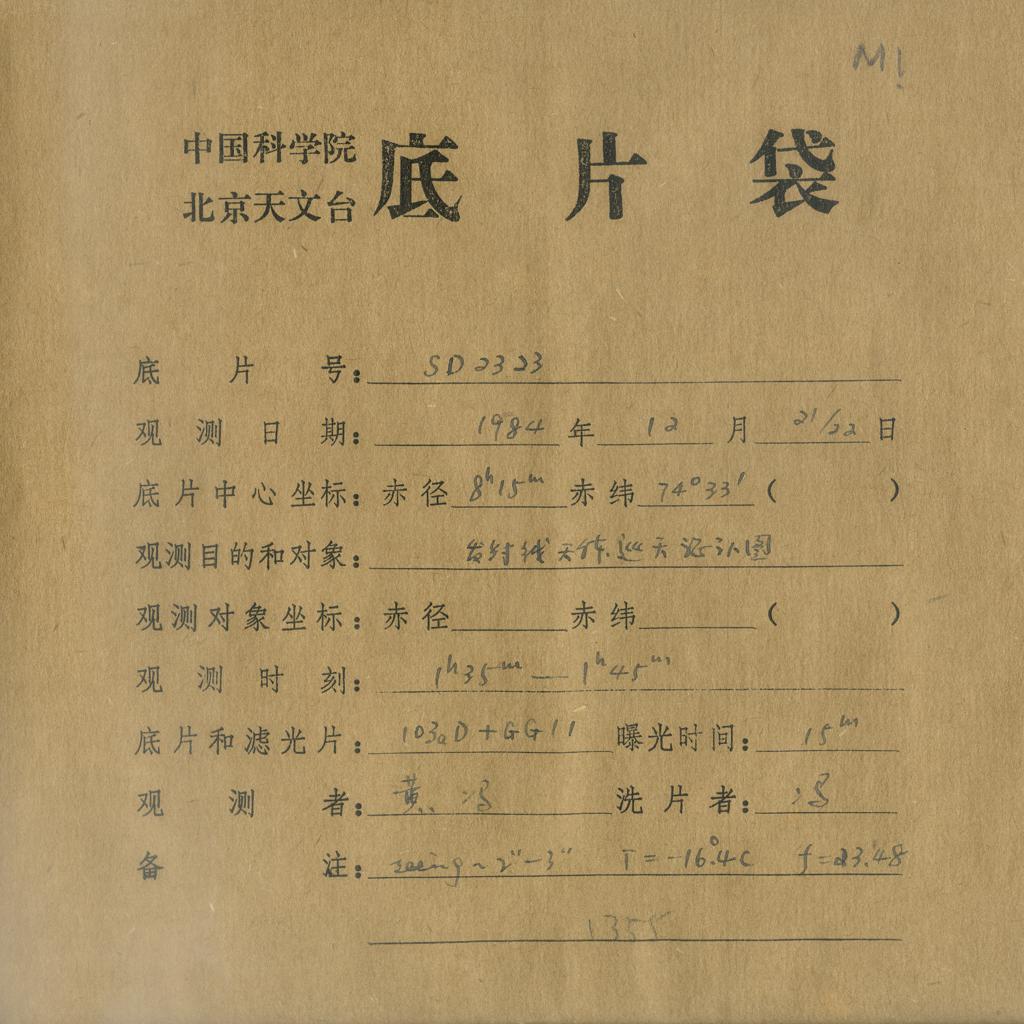 M!
中国科学院
北京天文台
底片袋
底片号: SD2323
观测日期: 1984年12月21/22日
底片中心坐标: 赤径 8h15m 赤纬 74°33′ ( )
观测目的和对象: 发射线天体巡天证认图
观测对象坐标: 赤径 赤纬 ( )
观测时刻: 1h35m — 1h45m
底片和滤光片: 103aD+GG11 曝光时间: 15m
观测者: 黄、冯 洗片者: 冯
备注: seeing~2"-3" T=-16°.4C f=23.48
1355